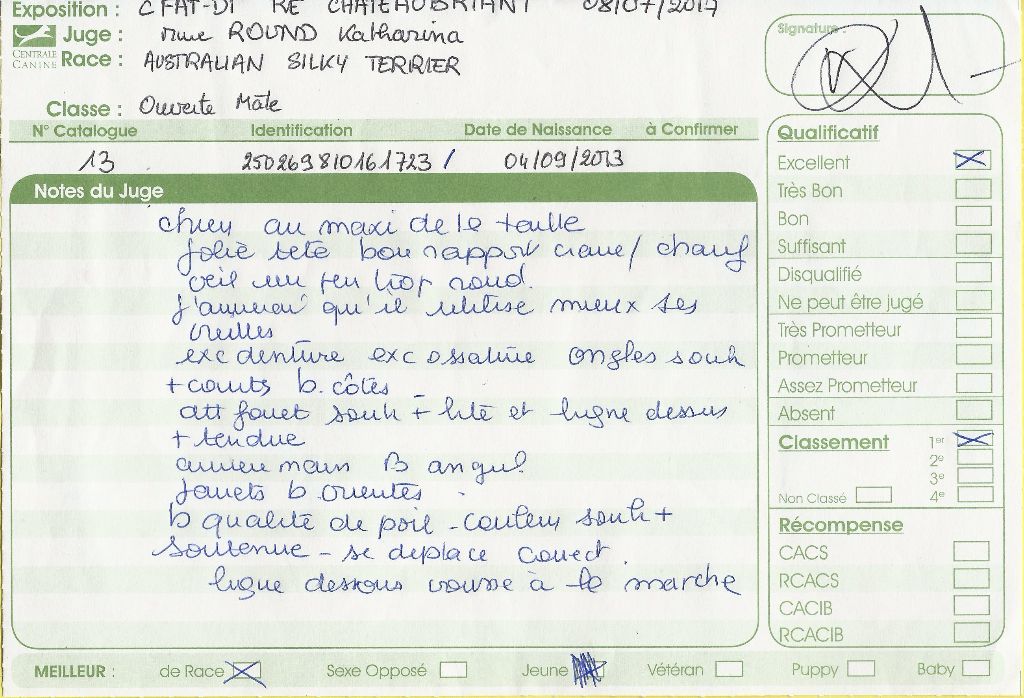 Exposition : CFAT-DI RE CHATEAUBRIANT 08/07/2017
Juge : Mme ROUND Katharina
CENTRALE CANINE
Race : AUSTRALIAN SILKY TERRIER
Classe : Ouverte Mâle
Signature :
N° Catalogue Identification Date de Naissance à Confirmer
13 250269810161723 / 04/09/2013
Notes du Juge
chien au maxi de la taille
jolie tete bon rapport crane/chanf
oeil un peu trop rond.
j'aimerai qu'il utilise mieux ses
oreilles
exc denture exc ossature ongles souh
+ courts b. côtes
att fouet souh + hte et ligne dessus
+ tendue
arriere main B angul.
jarrets b. orientés
b qualité de poil - couleur souh +
soutenue - se deplace correct.
ligne dessous vousse à la marche
Qualificatif
Excellent
Très Bon
Bon
Suffisant
Disqualifié
Ne peut être jugé
Très Prometteur
Prometteur
Assez Prometteur
Absent
Classement 1er
2e
3e
Non Classé 4e
Récompense
CACS
RCACS
CACIB
RCACIB
MEILLEUR : de Race Sexe Opposé Jeune Vétéran Puppy Baby